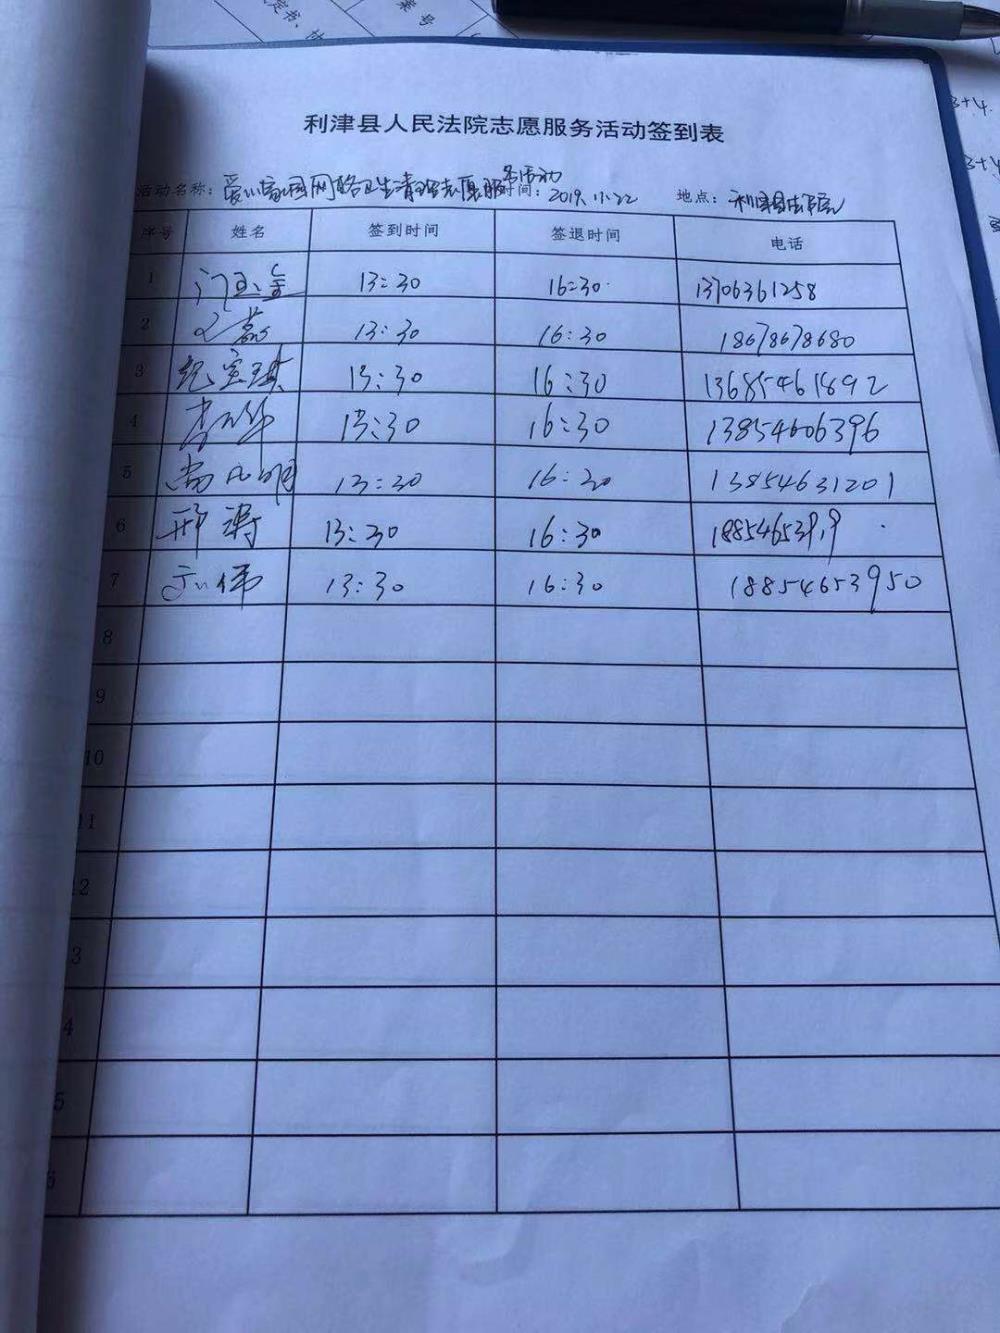 利津县人民法院志愿服务活动签到表
活动名称: 爱心家园网络卫生清理志愿服务活动 时间: 2019.11.22 地点: 利津县法院
序号 姓名 签到时间 签退时间 电话
1 13:30 16:30 13706361258
2 13:30 16:30 18678678680
3 纪宝琪 13:30 16:30 13685461892
4 13:30 16:30 13854606396
5 13:30 16:30 13854631201
6 邢涛 13:30 16:30
7 13:30 16:30 18854653950
8
9
10
11
12
3
4
5
6